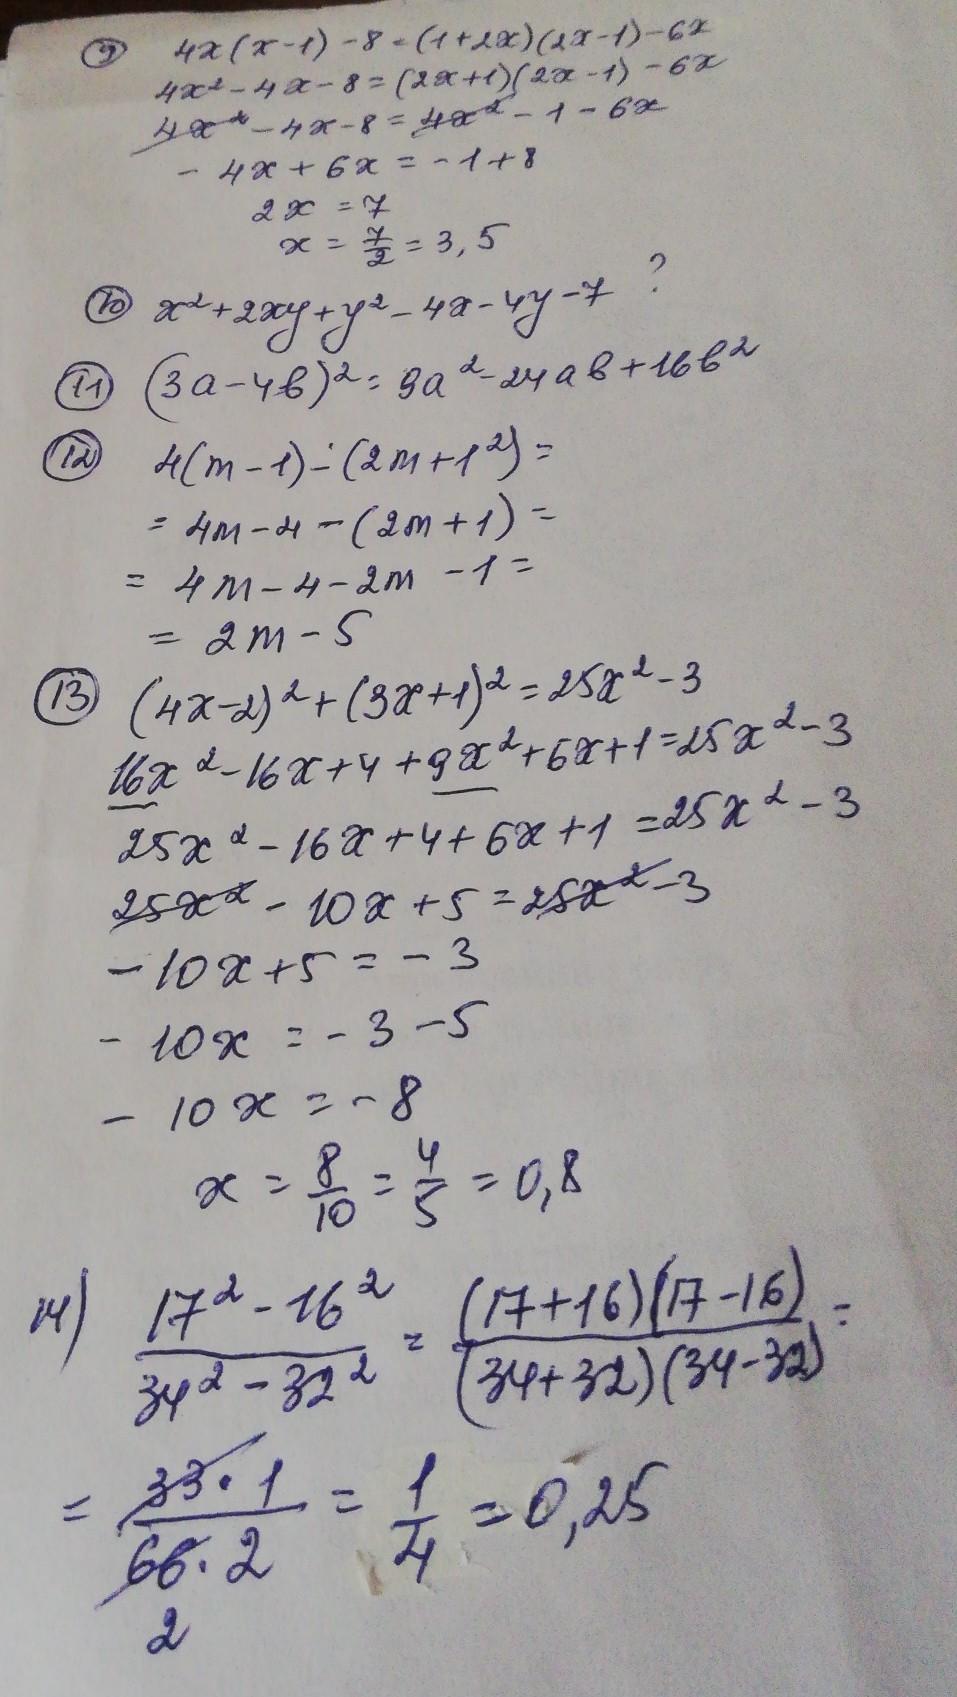 9 4x(x-1)-8=(1+2x)(2x-1)-6x
4x²-4x-8=(2x+1)(2x-1)-6x
4x²-4x-8=4x²-1-6x
-4x+6x=-1+8
2x=7
x=7/2=3,5
10 x²+2xy+y²-4x-4y-7 ?
11 (3a-4b)²=9a²-24ab+16b²
12 4(m-1)-(2m+1²)=
=4m-4-(2m+1)=
=4m-4-2m-1=
=2m-5
13 (4x-2)²+(3x+1)²=25x²-3
16x²-16x+4+9x²+6x+1=25x²-3
25x²-16x+4+6x+1=25x²-3
25x²-10x+5=25x²-3
-10x+5=-3
-10x=-3-5
-10x=-8
x=8/10=4/5=0,8
14) (17²-16²)/(34²-32²)=((17+16)(17-16))/((34+32)(34-32))=
=(33·1)/(66·2)=1/4=0,25
2